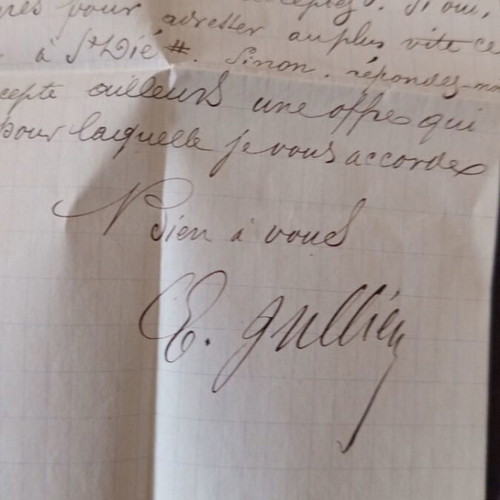 pour acceptez. Si oui,
adresser au plus vite ce
à St Dié #. Sinon, répondez-mo
cepte ailleurs une offre qui
pour laquelle je vous accorde
Bien à vous
E. Gullien